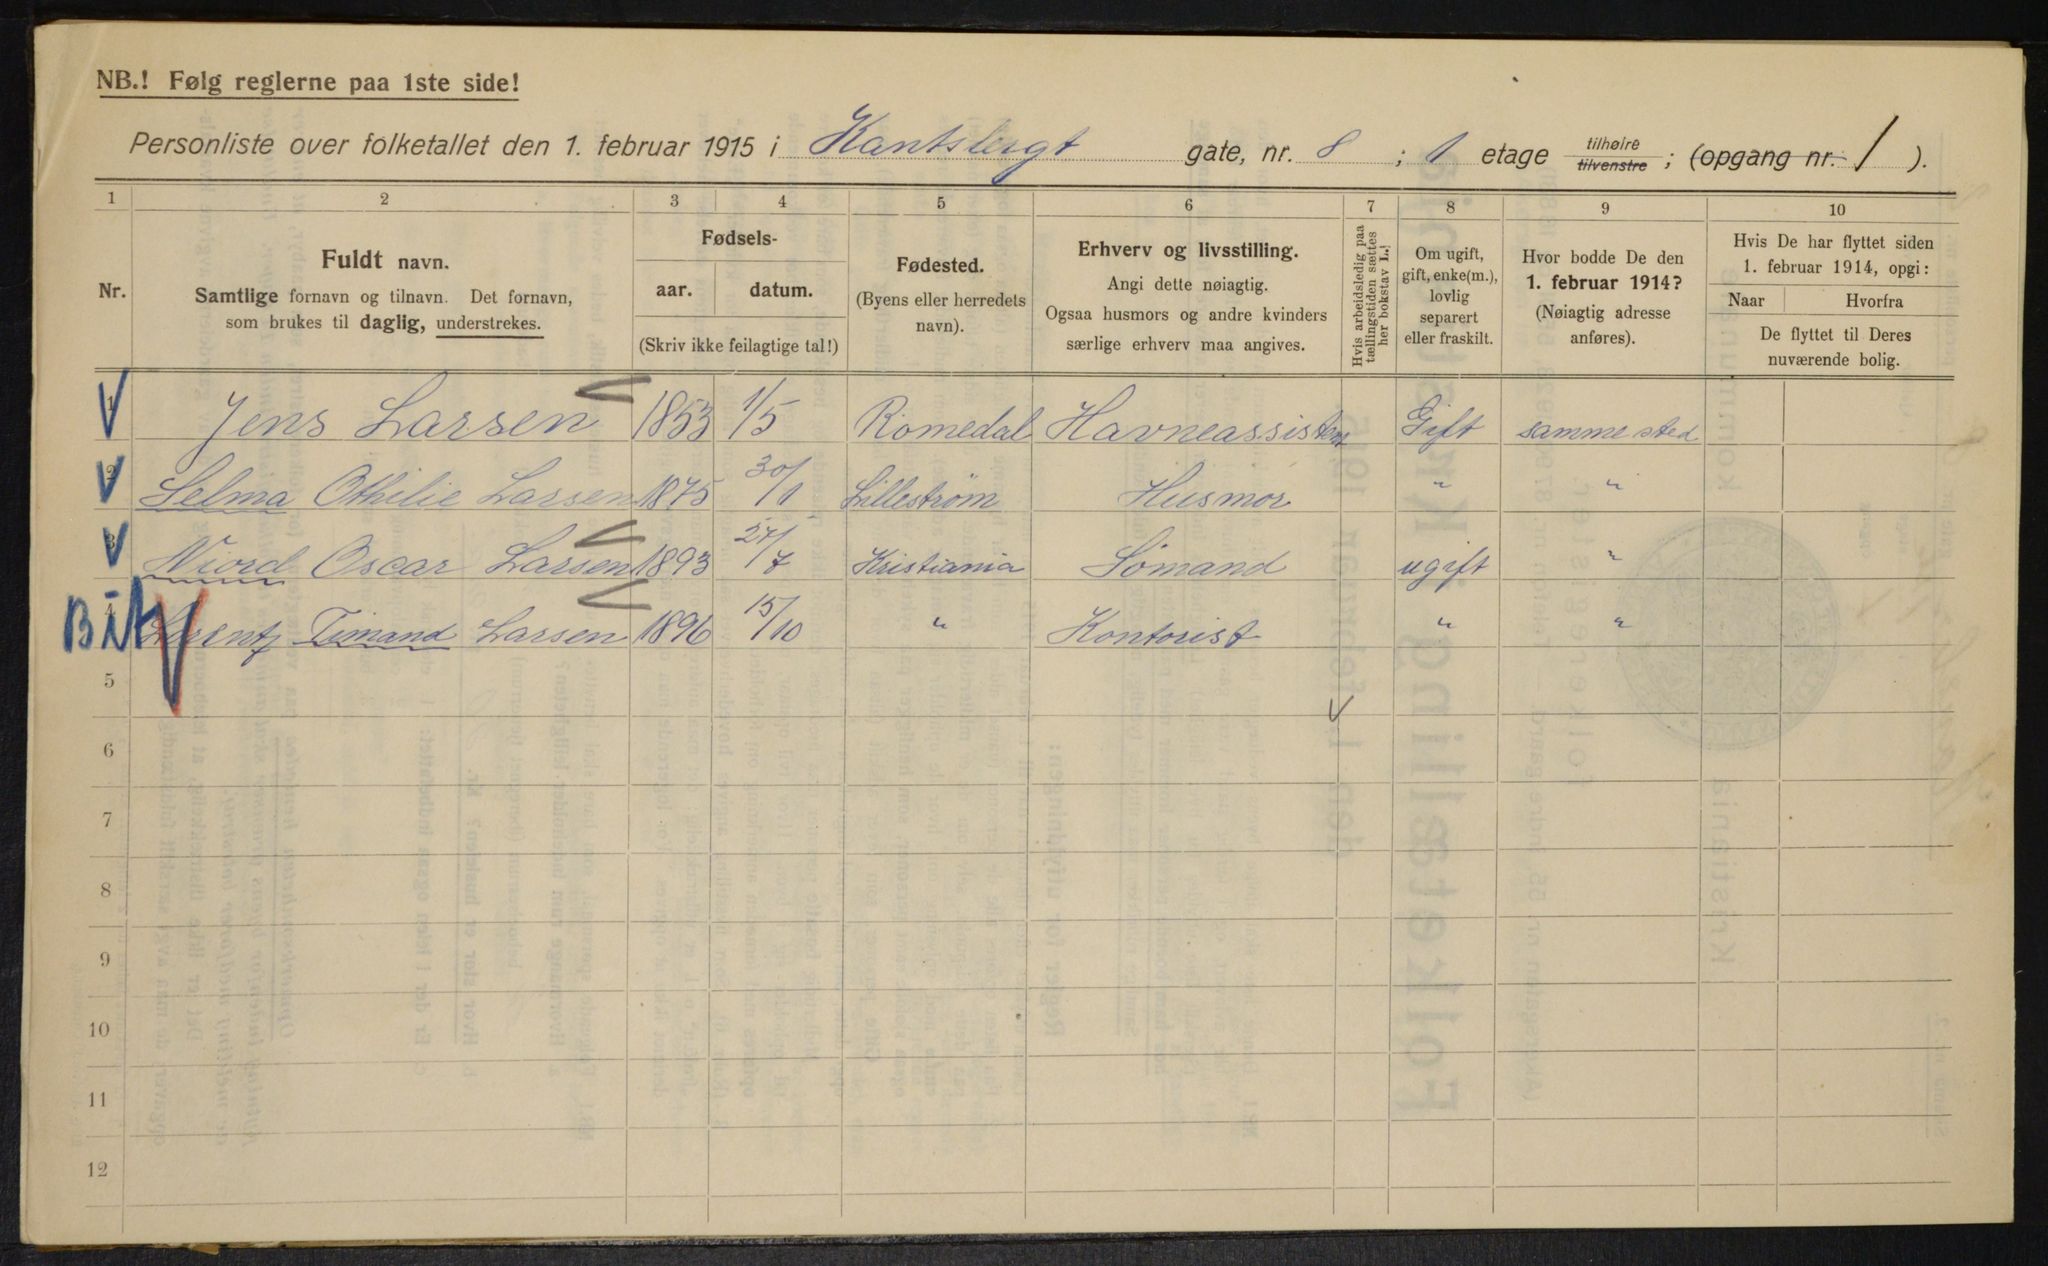 NB.! Følg reglerne paa 1ste side!
Personliste over folketallet den 1. februar 1915 i Kantslergt gate, nr. 8 ; 1 etage tilhøire tilvenstre ; (opgang nr. 1 ).
1 2 3 4 5 6 7 8 9 10
Nr.
Fuldt navn.
Samtlige fornavn og tilnavn. Det fornavn,
som brukes til daglig, understrekes.
Fødsels-
aar. datum.
(Skriv ikke feilagtige tal!)
Fødested.
(Byens eller herredets
navn).
Erhverv og livsstilling.
Angi dette nøiagtig.
Ogsaa husmors og andre kvinders
særlige erhverv maa angives.
Hvis arbeidsledig paa
tællingstiden sættes
her bokstav L.!
Om ugift,
gift, enke(m.),
lovlig
separert
eller fraskilt.
Hvor bodde De den
1. februar 1914?
(Nøiagtig adresse
anføres).
Hvis De har flyttet siden
1. februar 1914, opgi:
Naar Hvorfra
De flyttet til Deres
nuværende bolig.
1 Jens Larsen 1853 1/5 Romedal Havneassistent Gift samme sted
2 Selma Othilie Larsen 1875 30/1 Lillestrøm Husmor " "
3 Niord Oscar Larsen 1893 27/7 Kristiania Sömand ugift "
4 Larentz Timand Larsen 1896 15/10 " Kontorist " "
5
6
7
8
9
10
11
12